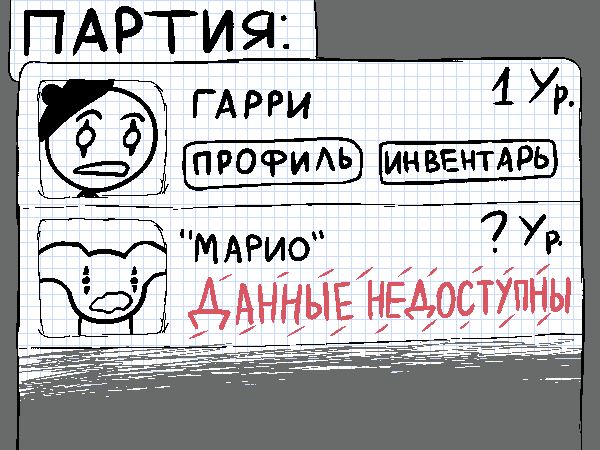 ПАРТИЯ:
ГАРРИ
1 Ур.
ПРОФИЛЬ
ИНВЕНТАРЬ
"МАРИО"
? Ур.
ДАННЫЕ НЕДОСТУПНЫ